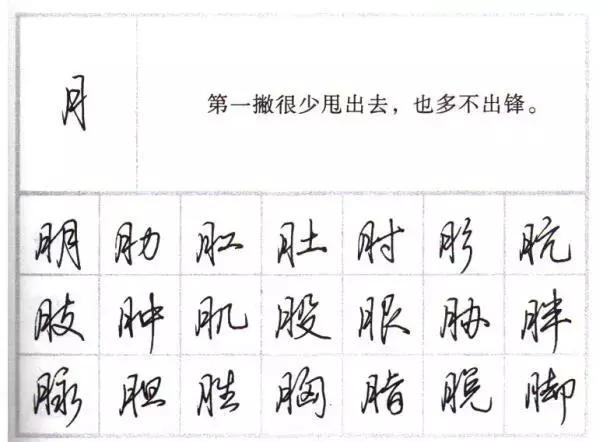 月 第一撇很少甩出去，也多不出锋。
朋 肋 肛 肚 肘 肜 肮
肢 肿 肌 股 胁 胖
脉 胆 胜 胸 脂 脱 脚